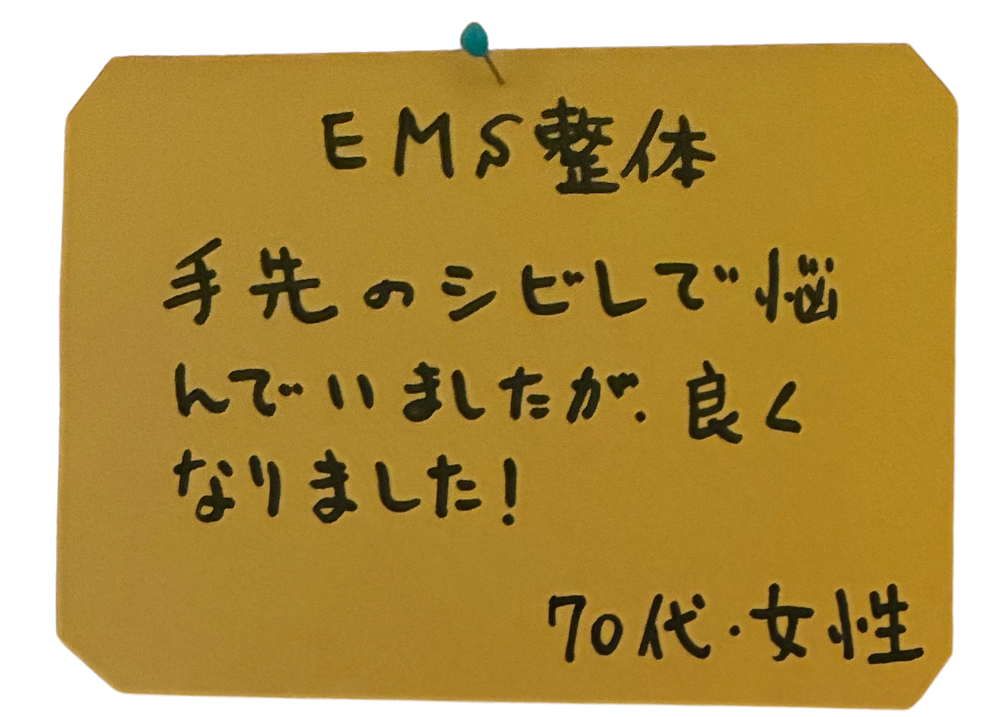 EMS整体
手先のシビレで悩
んでいましたが、良く
なりました!
70代・女性